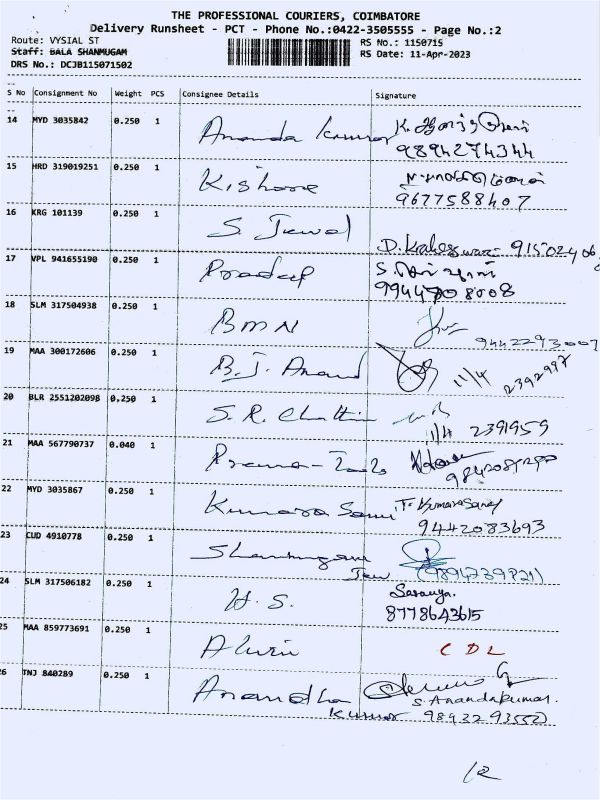 THE PROFESSIONAL COURIERS, COIMBATORE
Delivery Runsheet - PCT - Phone No.:0422-3505555 - Page No.:2
Route: VYSIAL ST RS No.: 1150715
Staff: BALA SHANMUGAM RS Date: 11-Apr-2023
DRS No.: DCJB115071502
S No Consignment No Weight PCS Consignee Details Signature
14 MYD 3035842 0.250 1 Ananda Kumar
9894274344
15 HRD 319019251 0.250 1 Kishore
9677588407
16 KRG 101139 0.250 1 S. Jewal
17 VPL 941655190 0.250 1 Pradeep
9944708008
18 SLM 317504938 0.250 1 BMN
9442293007
19 MAA 300172606 0.250 1 B.J. Anand 11/4 2392997
20 BLR 2551202098 0.250 1 S.R.
11/4 2391959
21 MAA 567790737 0.040 1
22 MYD 3035867 0.250 1 Kumara Samy T. Kumarasamy
9442083693
23 CUD 4910778 0.250 1 Shanmugam
(9894739821)
24 SLM 317506182 0.250 1 H.S. Saranya.
8778643615
25 MAA 859773691 0.250 1 Alwin CDL
26 TNJ 840289 0.250 1 Anandha
Kumar S. Anandakumar.
12